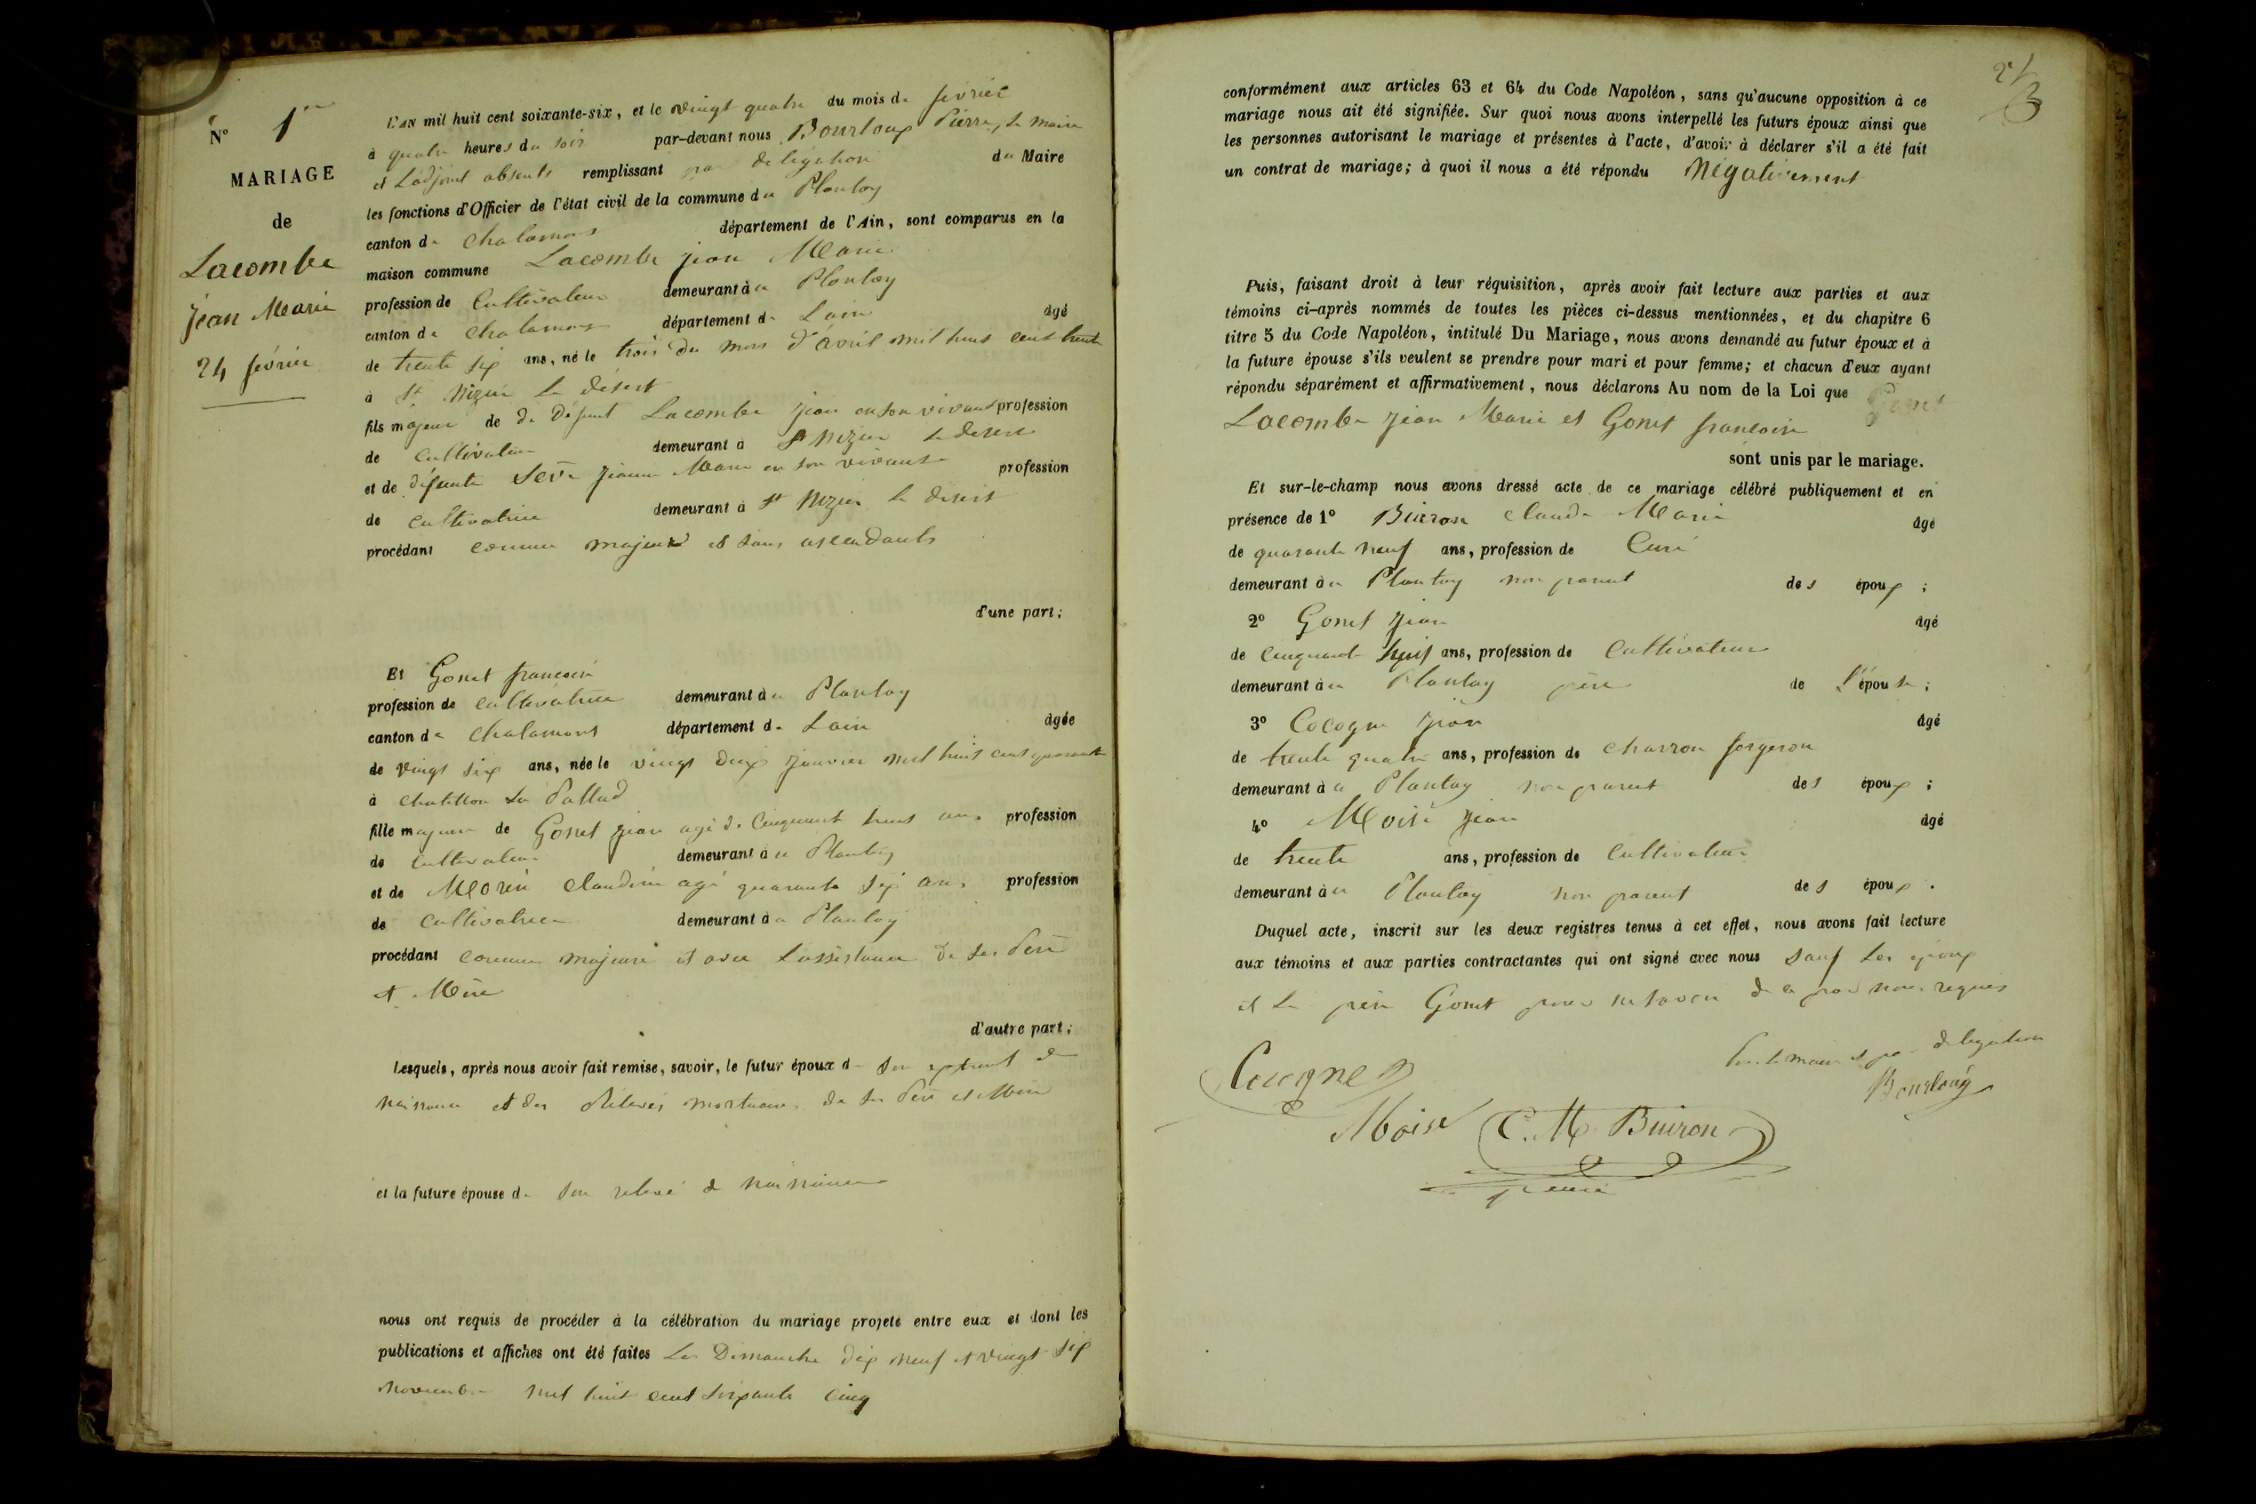 N° 1er
MARIAGE
de
Lacombe
jean Marie
24 février
L'AN mil huit cent soixante-six, et le vingt quatre du mois de février
à quatre heures du soir par-devant nous Bourloup Pierre, Le Maire
et Ladjoint absents remplissant par délégation du Maire
les fonctions d'Officier de l'état civil de la commune du Plantay
canton de Chalamont département de l'Ain, sont comparus en la
maison commune Lacombe jean Marie
profession de Cultivateur demeurant à u Plantay
canton de Chalamont département de Lain âgé
de trente six ans, né le trois du mois d'avril mil huit cent trente
à St Nizier Le Désert
fils majeur de de Défunt Lacombe jean en son vivant profession
de cultivateur demeurant à St Nizier le desert
et de défunte Sève jeanne Marie en son vivant profession
de cultivatrice demeurant à St Nizier le desert
procédant comme majeur et sans ascendants
d'une part;
Et Gonet francoise
profession de cultivatrice demeurant à u Plantay
canton de Chalamont département de Lain âgée
de vingt six ans, née le vingt deux janvier mil huit cent quarante
à Chatillon La Pallud
fille majeure de Gonet jean agé de Cinquante huit ans profession
de Cultivateur demeurant à u Plantay
et de Morin claudine agé quarante six ans profession
de Cultivatrice demeurant à u Plantay
procédant comme majeure et avec Lassistance de ses Père
et Mère
d'autre part;
Lesquels, après nous avoir fait remise, savoir, le futur époux de son extrait de
naissance et des Rélevés mortuaires de ses Père et Mère
et la future épouse de son relevé de naissance
nous ont requis de procéder à la célébration du mariage projeté entre eux et dont les
publications et affiches ont été faites Les Dimanche dix neuf et vingt six
novembre mil huit cent soixante cinq
21
3
conformément aux articles 63 et 64 du Code Napoléon, sans qu'aucune opposition à ce
mariage nous ait été signifiée. Sur quoi nous avons interpellé les futurs époux ainsi que
les personnes autorisant le mariage et présentes à l'acte, d'avoir à déclarer s'il a été fait
un contrat de mariage; à quoi il nous a été répondu Négativement
Puis, faisant droit à leur réquisition, après avoir fait lecture aux parties et aux
témoins ci-après nommés de toutes les pièces ci-dessus mentionnées, et du chapitre 6
titre 5 du Code Napoléon, intitulé Du Mariage, nous avons demandé au futur époux et à
la future épouse s'ils veulent se prendre pour mari et pour femme; et chacun d'eux ayant
répondu séparément et affirmativement, nous déclarons Au nom de la Loi que
Lacombe jean Marie et Gonet francoise
sont unis par le mariage.
Et sur-le-champ nous avons dressé acte de ce mariage célébré publiquement et en
présence de 1° Buiron Claude Marie âgé
de quarante neuf ans, profession de Curé
demeurant à u Plantay non parent des époux;
2° Gonet jean âgé
de cinquante huit ans, profession de Cultivateur
demeurant à u Plantay père de L'épouse;
3° Cocogne jean âgé
de trente quatre ans, profession de charron forgeron
demeurant à u Plantay non parent des époux;
4° Moise jean âgé
de trente ans, profession de Cultivateur
demeurant à u Plantay non parent des époux.
Duquel acte, inscrit sur les deux registres tenus à cet effet, nous avons fait lecture
aux témoins et aux parties contractantes qui ont signé avec nous sauf Les époux
et Le père Gonet pour ne savoir de ce par nous requis
Pour le maire et par délégation
Bourloup
Cocogne
Moise C. M. Buiron
curé